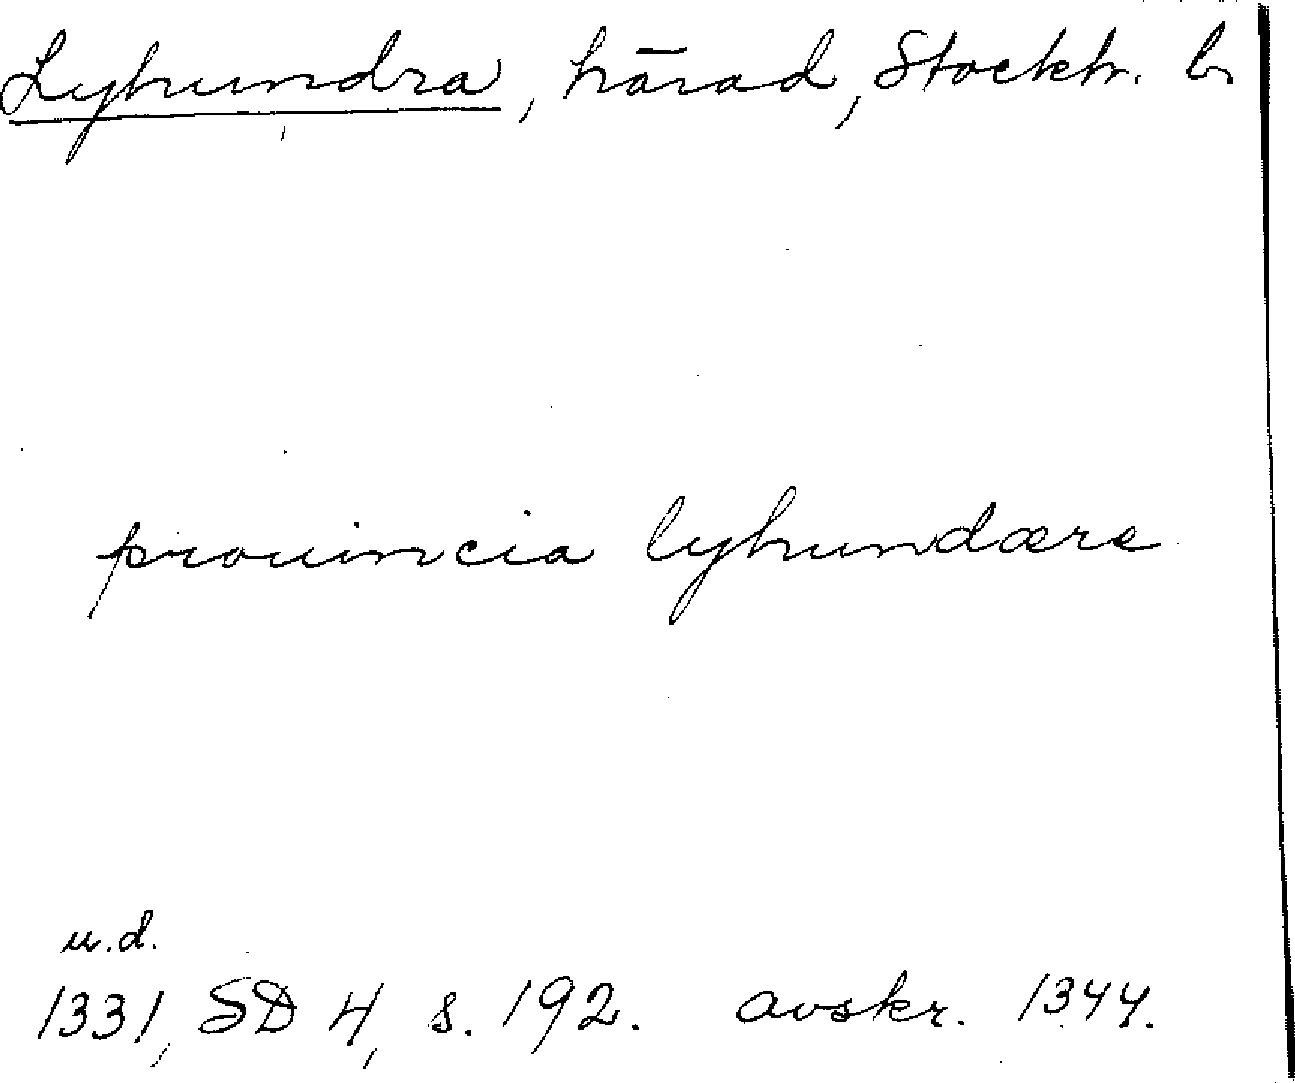 Lyhundra, härad, Stockh. l.
prouincia lyhundære
u.d.
1331, SD 4, s. 192. avskr. 1344.